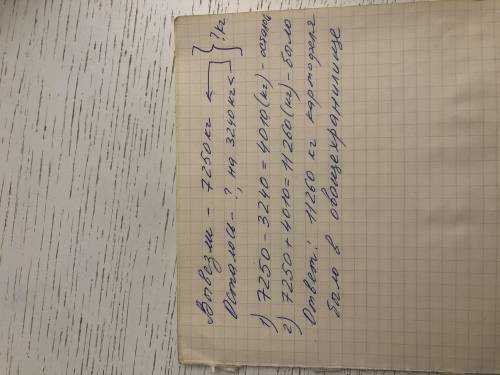 Вывезли – 7250 кг
Осталось – ?, на 3240 кг < } ? кг
1) 7250 – 3240 = 4010 (кг) – осталось
2) 7250 + 4010 = 11260 (кг) – было
Ответ: 11260 кг картофеля
было в овощехранилище